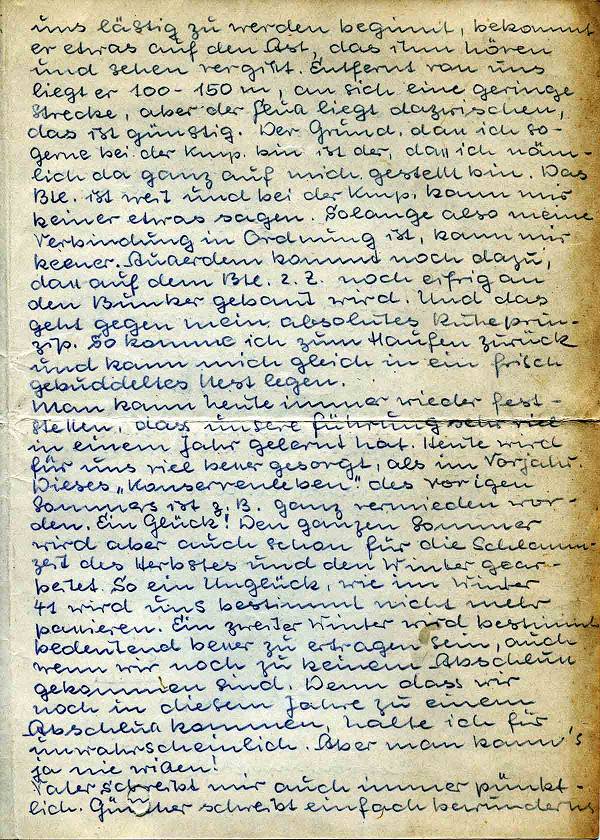 uns lästig zu werden beginnt, bekommt
er etwas auf den Ast, das ihm hören
und sehen vergißt. Entfernt von uns
liegt er 100-150 m, an sich eine geringe
Strecke, aber der Fluß liegt dazwischen,
das ist günstig. Der Grund, daß ich so-
gerne bei der Kmp. bin ist der, daß ich näm-
lich da ganz auf mich gestellt bin. Das
Btl. ist weit und bei der Kmp. kann mir
keiner etwas sagen. Solange also meine
Verbindung in Ordnung ist, kann mir
keener. Außerdem kommt noch dazu,
daß auf dem Btl. z. Z. noch eifrig an
den Bunker gebaut wird. Und das
geht gegen mein absolutes Ruheprin-
zip. So komme ich zum Haufen zurück
und kann mich gleich in ein frisch
gebuddeltes Nest legen.
Man kann heute immer wieder fest-
stellen, dass unsere Führung sehr viel
in einem Jahr gelernt hat. Heute wird
für uns viel besser gesorgt, als im Vorjahr.
Dieses „Konservenleben" des vorigen
Sommers ist z. B. ganz vermieden wor-
den. Ein Glück! Den ganzen Sommer
wird aber auch schon für die Schlamm-
zeit des Herbstes und den Winter gear-
beitet. So ein Unglück, wie im Winter
41 wird uns bestimmt nicht mehr
passieren. Ein zweiter Winter wird bestimmt
bedeutend besser zu ertragen sein, auch
wenn wir noch zu keinem Abschluß
gekommen sind. Denn dass wir
noch in diesem Jahre zu einem
Abschluß kommen, halte ich für
unwahrscheinlich. Aber man kann's
ja nie wißen!
Vater schreibt mir auch immer pünkt-
lich. Günther schreibt einfach bewunderns